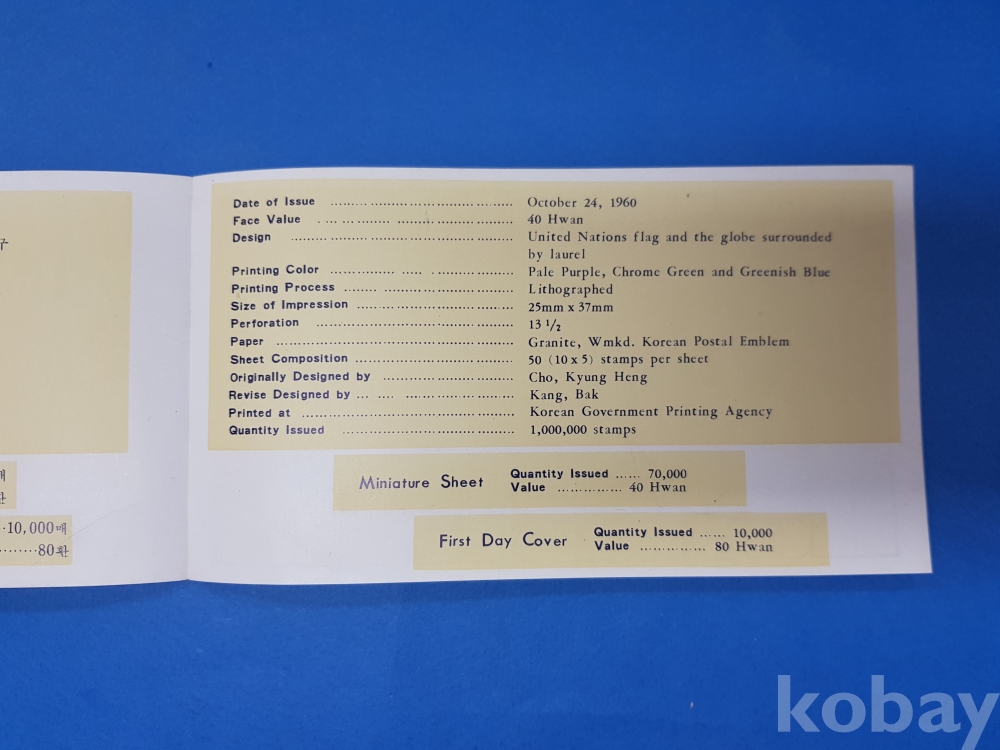 구
매
환
10,000매
80환
Date of Issue ........ October 24, 1960
Face Value ........ 40 Hwan
Design ........ United Nations flag and the globe surrounded
by laurel
Printing Color ........ Pale Purple, Chrome Green and Greenish Blue
Printing Process ........ Lithographed
Size of Impression ........ 25mm x 37mm
Perforation ........ 13 1/2
Paper ........ Granite, Wmkd. Korean Postal Emblem
Sheet Composition ........ 50 (10 x 5) stamps per sheet
Originally Designed by ........ Cho, Kyung Heng
Revise Designed by ........ Kang, Bak
Printed at ........ Korean Government Printing Agency
Quantity Issued ........ 1,000,000 stamps
Miniature Sheet Quantity Issued ...... 70,000
Value ............... 40 Hwan
First Day Cover Quantity Issued ...... 10,000
Value ............... 80 Hwan
kobay